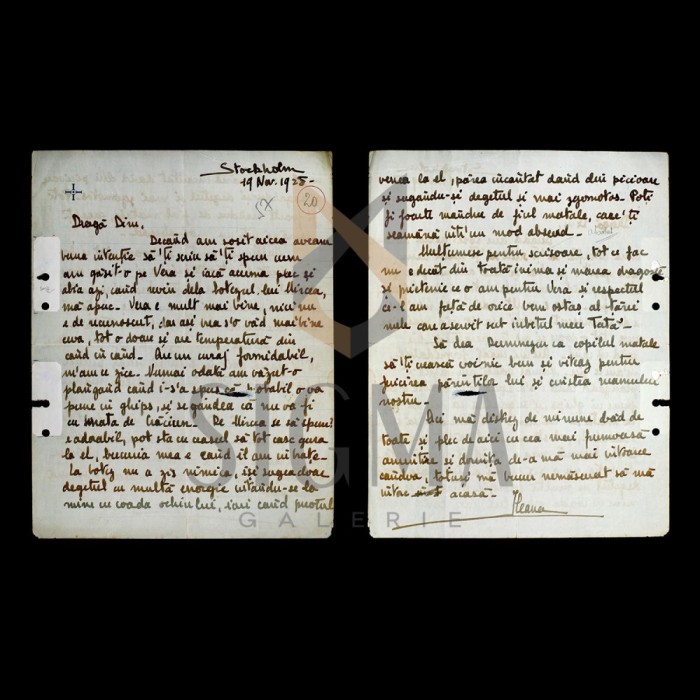 Stockholm
19 Nov. 1928-
57
20
Dragă Dinu,
Decând am sosit aicea aveam
buna intenție să'ți scriu să'ți spun cum
am găsit-o pe Vera și iacă acuma plec și
abia azi, când reviu dela botezul lui Mircea,
mă apuc. - Vera e mult mai bine, nici nu
e de recunoscut, dar ași vrea s'o văd mai bine
ceva, tot o doare și are temperatură din
când în când. - Are un curaj formidabil,
m'am ce zice. Numai odată am văzut-o
plângând când i-s'a spus că notabil o va
pune în ghips, și se gândea că nu va fi
cu de Crăciun. - De Mircea ce să spun?
e adorabil, pot sta cu ceasul să tot casc gura
la el, bucuria mea e când îl am în brațe.-
La botez nu a zis nimica, își sugea doar
degetul cu multă energie uitându-se la
mine cu coada ochiului, iar când preotul
venea la el, părea încântat dând din picioare
și sugându-și degetul și mai zgomotos. Poți
fi foarte mândru de fiul matale, care'ți
seamănă într'un mod absurd. -
Mulțumesc pentru scrisoare, tot ce fac
nu e decât din toată inima și marea dragoste
și prietenie ce o am pentru Vera și respectul
ce-l am față de orice bun ostaș al țării
mele care a servit sub iubitul meu Tată. -
Să dea Dumnezeu ca copilul matale
să'ți crească voinic bun și viteaz pentru
fericirea părinților lui și cinstea neamului
nostru. -
Aci mă de minune două de
toate și plec de aici cu cea mai frumoasă
amintire și dorința de-a mă mai întoarce
cândva, totuși mă bucur nemăsurat să mă
întorc acasă. -
Ileana
SIGMA
GALERIE